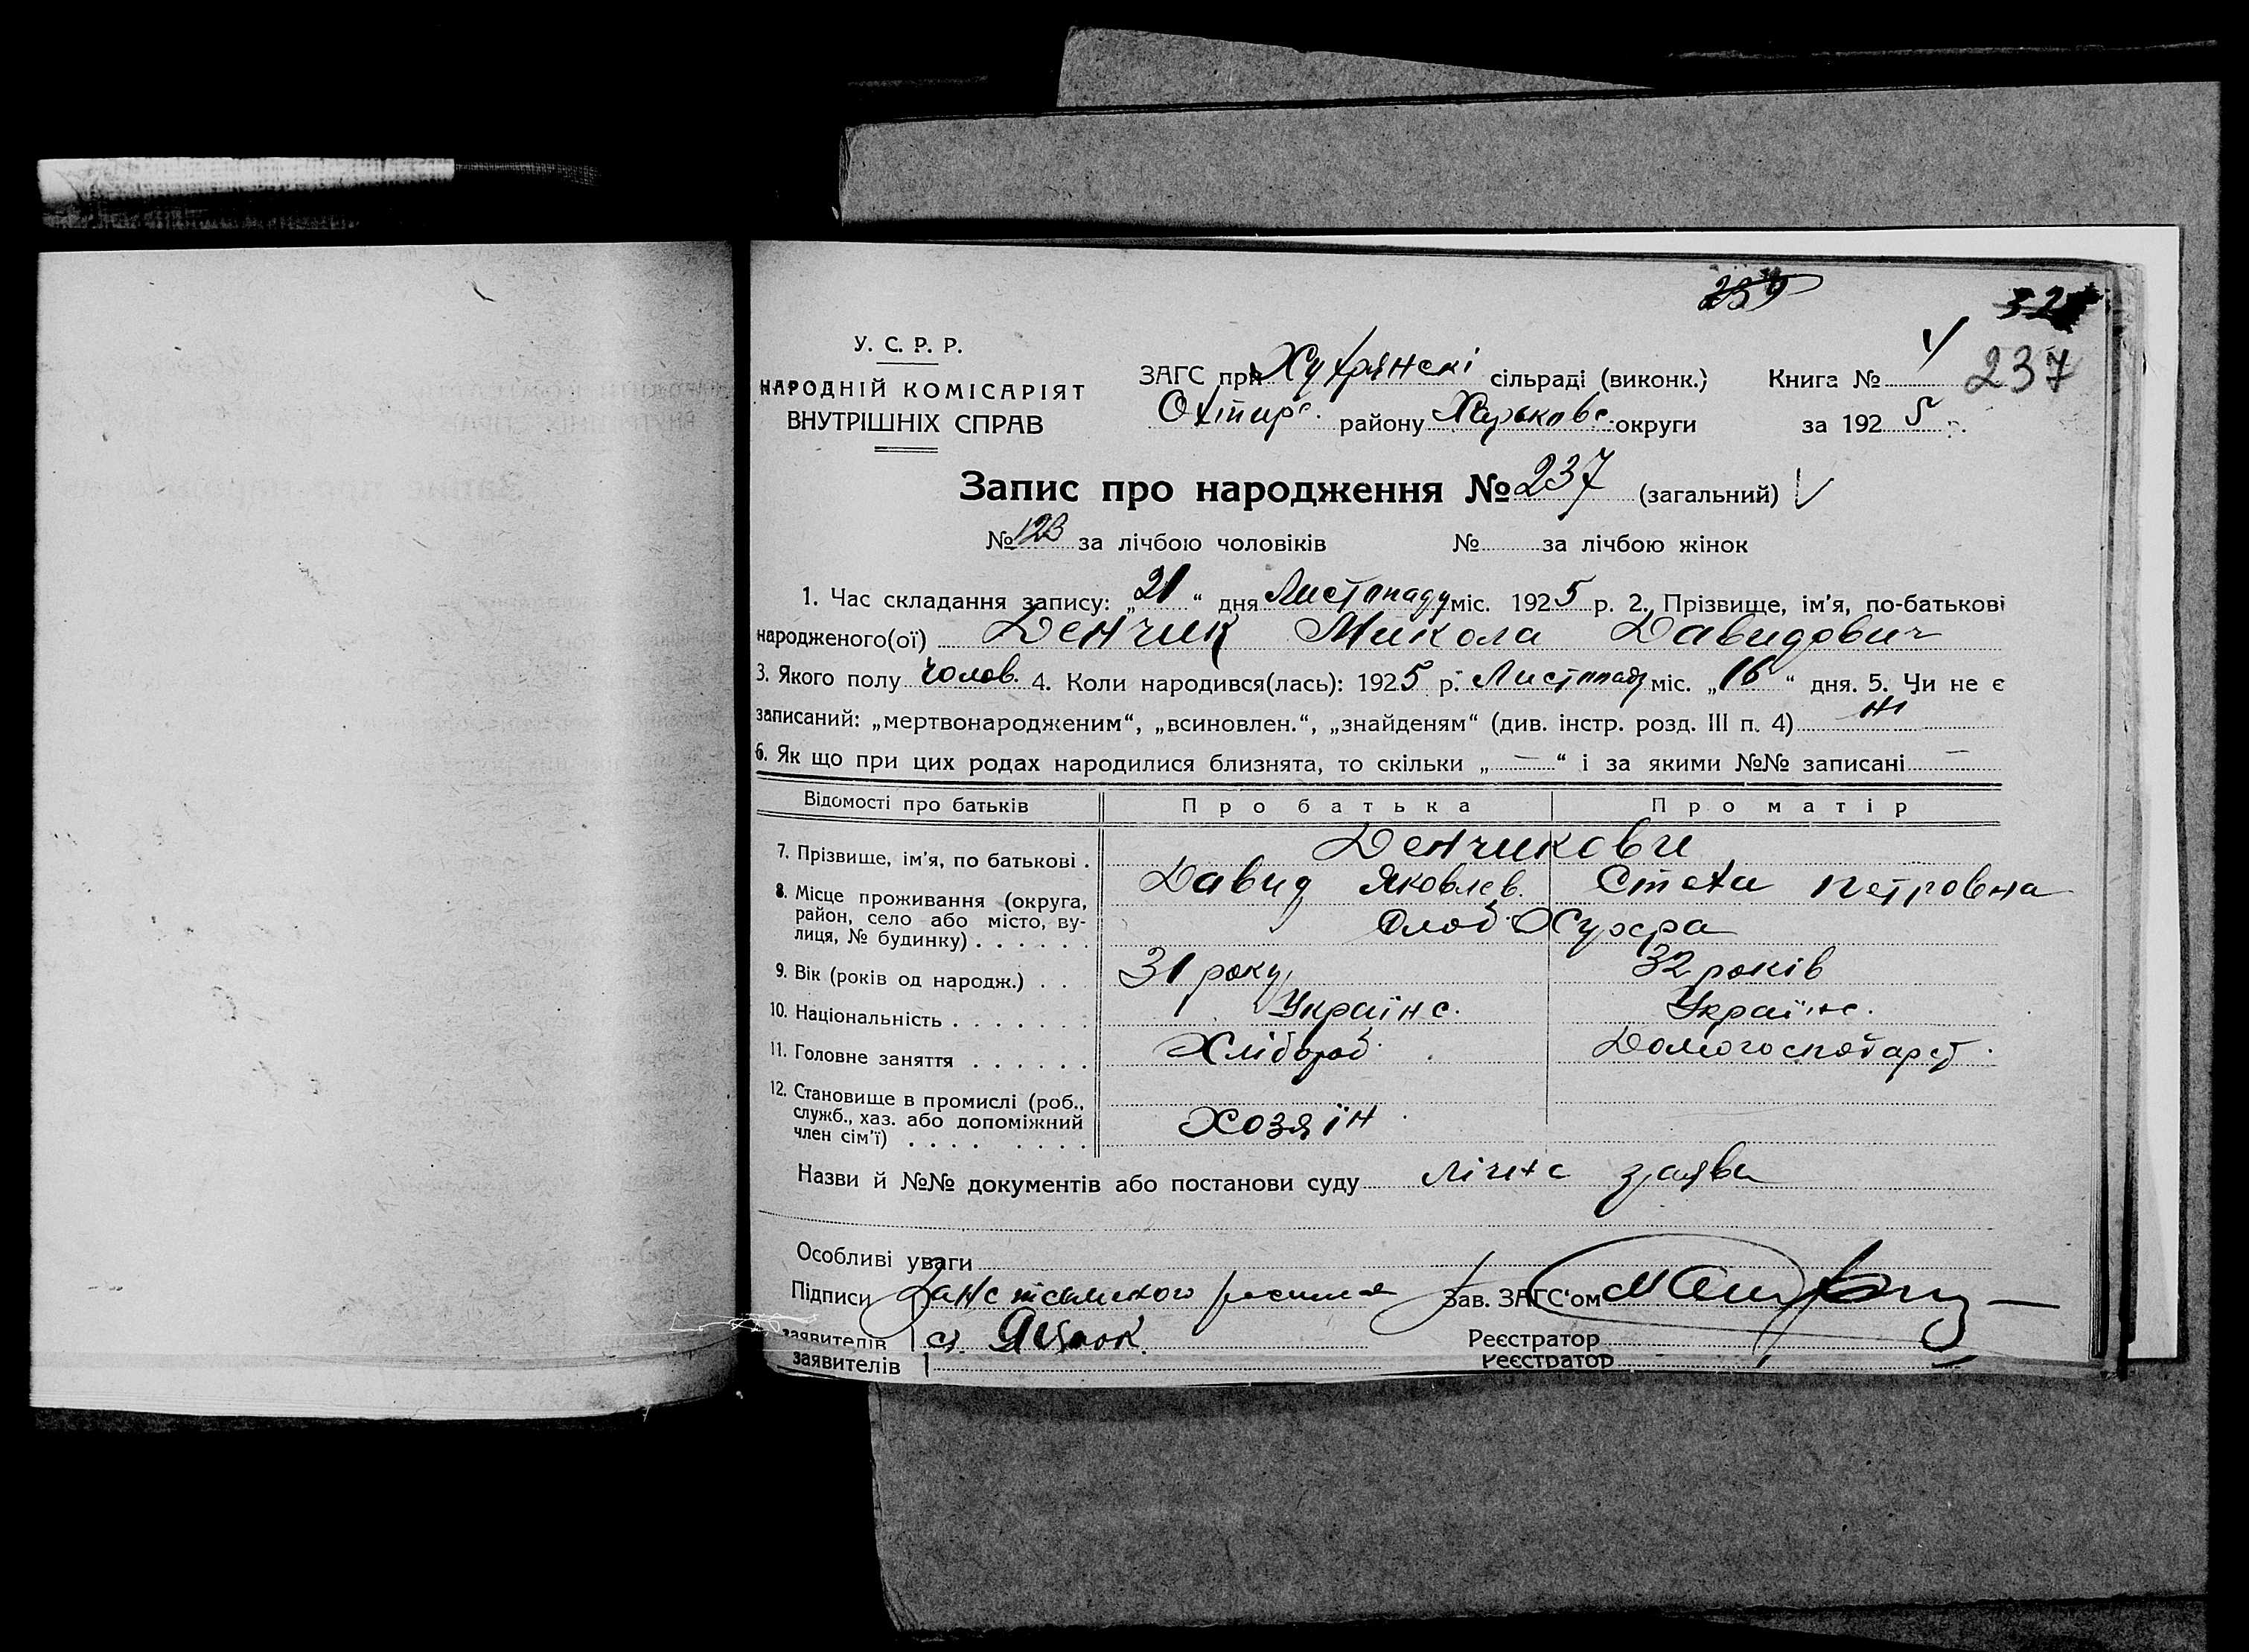 У. С. Р. Р.
НАРОДНІЙ КОМІСАРІЯТ
ВНУТРІШНІХ СПРАВ
ЗАГС при Хухрянскі сільраді (виконк.) Книга № 237
Охтирс. району Харьковс. округи за 1925 р.
Запис про народження № 237 (загальний)
№ 123 за лічбою чоловіків № за лічбою жінок
1. Час складання запису: „21“ дня Листопаду міс. 1925 р. 2. Прізвище, ім'я, по-батькові
народженого(ої) Денчик Микола Давидович
3. Якого полу чолов. 4. Коли народився(лась): 1925 р. Листопаду міс. „16“ дня. 5. Чи не є
записаний: „мертвонародженим“, „всиновлен.“, „знайденям“ (див. інстр. розд. III п. 4) ні
6. Як що при цих родах народилися близнята, то скільки „—“ і за якими №№ записані —
Відомості про батьків Про батька Про матір
7. Прізвище, ім'я, по батькові . Денчикови
Давид Яковлев. Стеха Петровна
8. Місце проживання (округа,
район, село або місто, ву-
лиця, № будинку) . . . . . . Слоб. Хухра
9. Вік (років од народж.) . . 31 року 32 років
10. Національність . . . . . . . Українс. Українс.
11. Головне заняття . . . . . . Хлібороб. Домогосподарст.
12. Становище в промислі (роб.,
служб., хаз. або допоміжний
член сім'ї) . . . . . . . . Хозяїн
Назви й №№ документів або постанови суду лічна заява
Особливі уваги
Підписи Зав. ЗАГС'ом
заявителів Реєстратор
заявителів Реєстратор